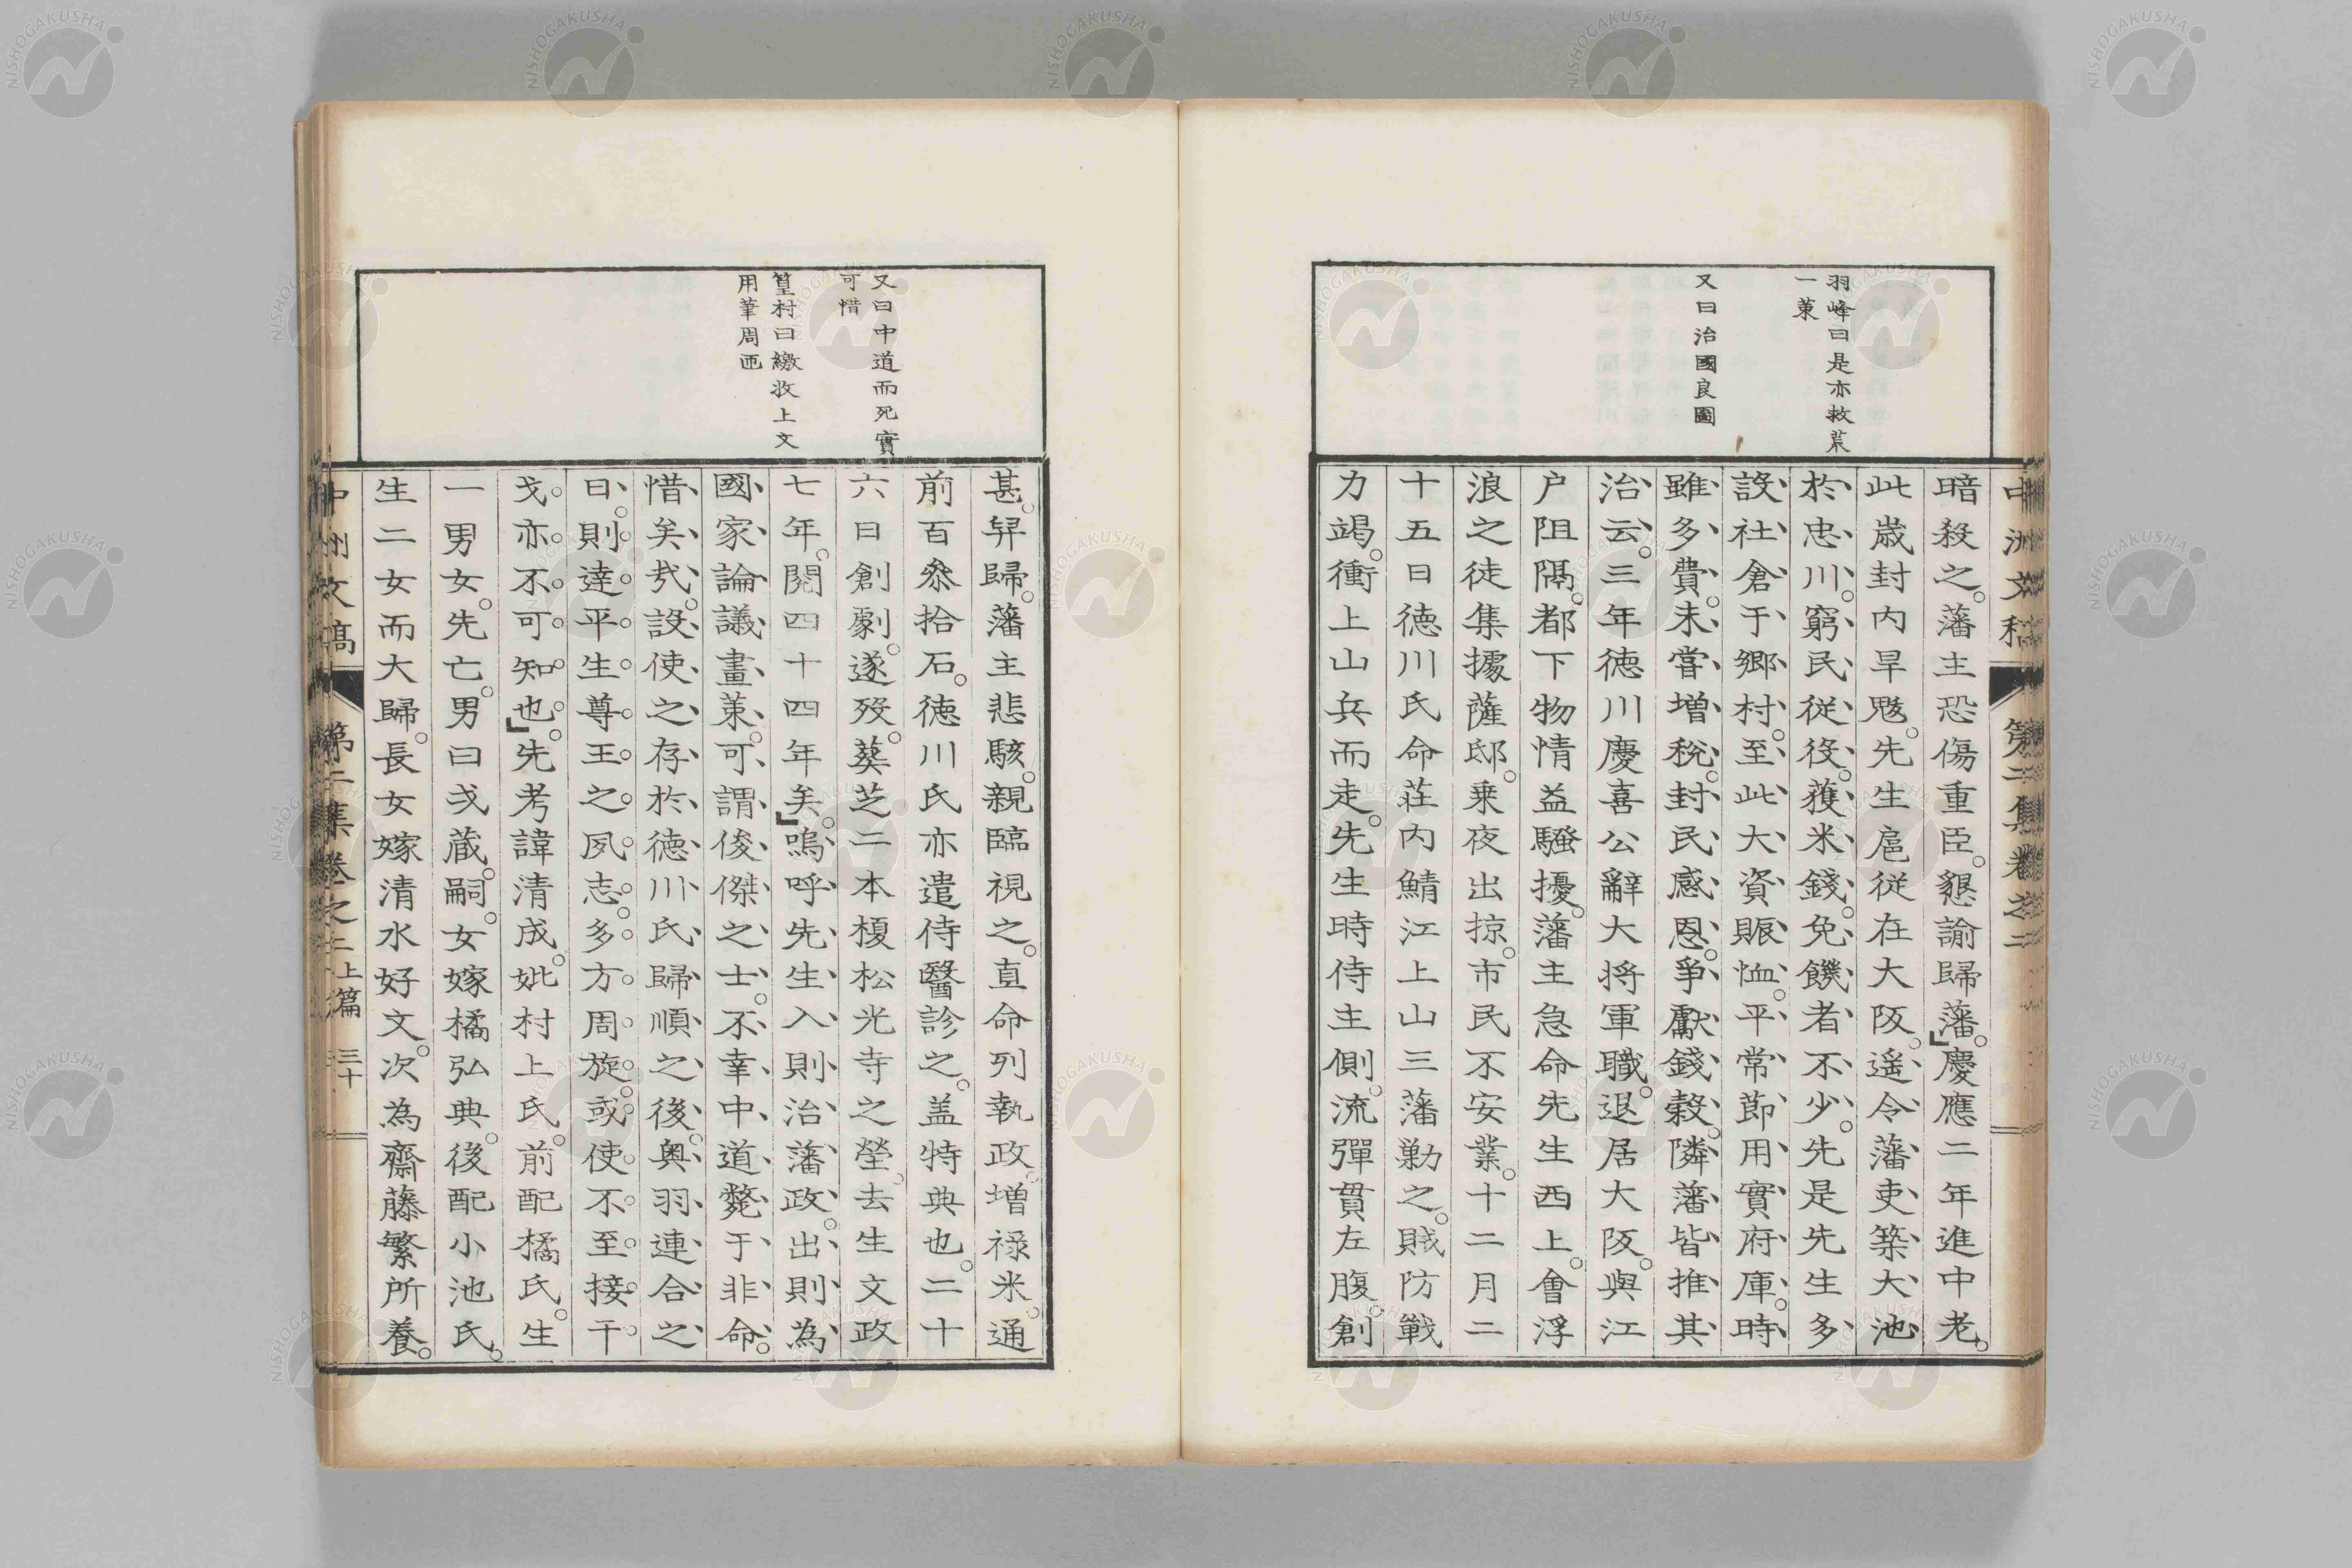 中洲文稿 第二集卷之二
羽峰曰是亦救荒
一策
又曰治國良圖
暗殺之。藩主恐傷重臣。懇諭歸藩。」慶應二年進中老。
此歲封内旱魃。先生扈從在大阪。遙令藩吏築大池
於忠川。窮民從役。獲米錢。免饑者不少。先是先生多
設社倉于郷村。至此大資賑恤。平常節用實府庫。時
雖多費。未嘗增稅。封民感恩。爭獻錢穀。隣藩皆推其
治云。三年徳川慶喜公辭大將軍職。退居大阪。與江
户阻隔。都下物情益騷擾。藩主急命先生西上。會浮
浪之徒集據薩邸。乗夜出掠。市民不安業。十二月二
十五日徳川氏命荘内鯖江上山三藩勦之。賊防戰
力竭。衝上山兵而走。先生時侍主側。流彈貫左腹。創
又曰中道而死實
可惜
篁村曰繳收上文
用筆周匝
甚。舁歸。藩主悲駭。親臨視之。直命列執政。増禄米。通
前百叅拾石。徳川氏亦遣侍醫診之。盖特典也。二十
六日創劇。遂歿。葬芝二本榎松光寺之塋。去生文政
七年。閲四十四年矣。」嗚呼先生入則治藩政。出則為
國家論議畫策。可謂俊傑之士。不幸中道斃于非命。
惜矣哉。設使之存於徳川氏歸順之後。奥羽連合之
日。則達平生尊王之夙志。多方周旋。或使不至接干
戈。亦不可知也。」先考諱清成。妣村上氏。前配橘氏。生
一男女。先亡。男曰戎蔵。嗣。女嫁橘弘典。後配小池氏。
生二女而大歸。長女嫁清水好文。次為齋藤繁所養。
中洲文稿 第二集卷之二上篇 三十